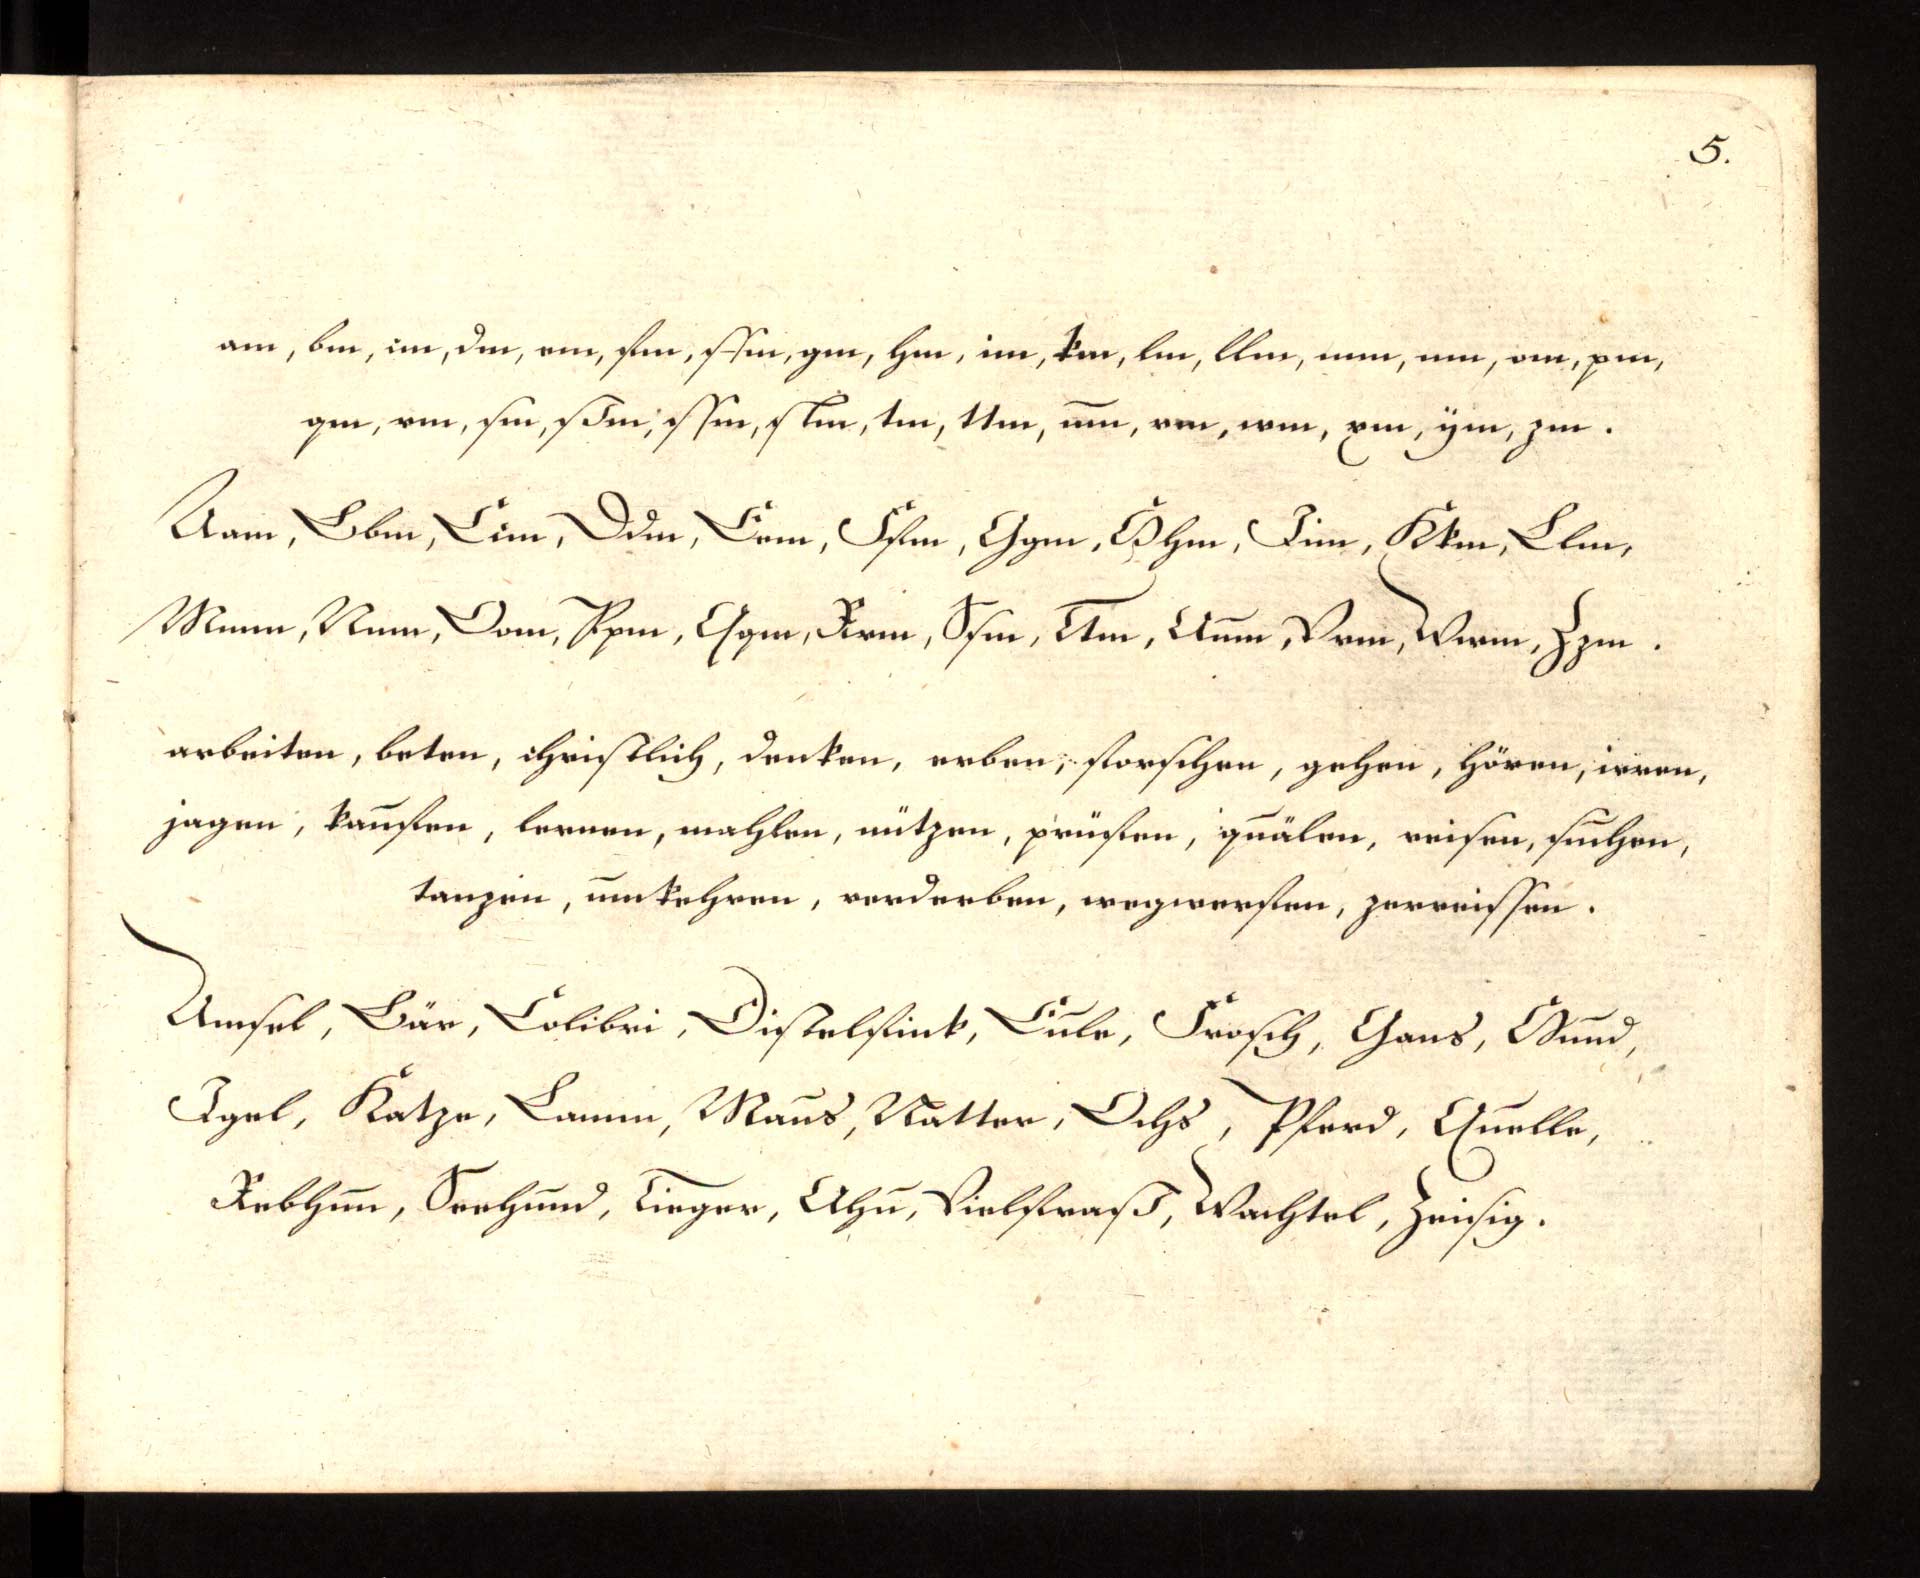 5.
am, bm, cm, dm, em, fm, ffm, gm, hm, im, km, lm, llm, mm, nm, om, pm,
qm, rm, sm, ßm, ssm, stm, tm, ttm, um, vm, wm, xm, ÿm, zm.
Aam, Bbm, Ccm, Ddm, Eem, Ffm, Ggm, Hhm, Iim, Kkm, Llm,
Mmm, Nnm, Oom, Ppm, Qqm, Rrm, Ssm, Ttm, Uum, Vvm, Wwm, Zzm.
arbeiten, beten, christlich, denken, erben, forschen, gehen, hören, irren,
jagen, kaufen, lernen, mahlen, nützen, prüfen, quälen, reisen, suchen,
tanzen, umkehren, verderben, wegwerfen, zerreissen.
Amsel, Bär, Colibri, Distelfink, Eule, Frosch, Gans, Hund,
Igel, Katze, Lamm, Maus, Natter, Ochs, Pferd, Quelle,
Rebhun, Seehund, Tieger, Uhu, Vielfraß, Wachtel, Zeisig.